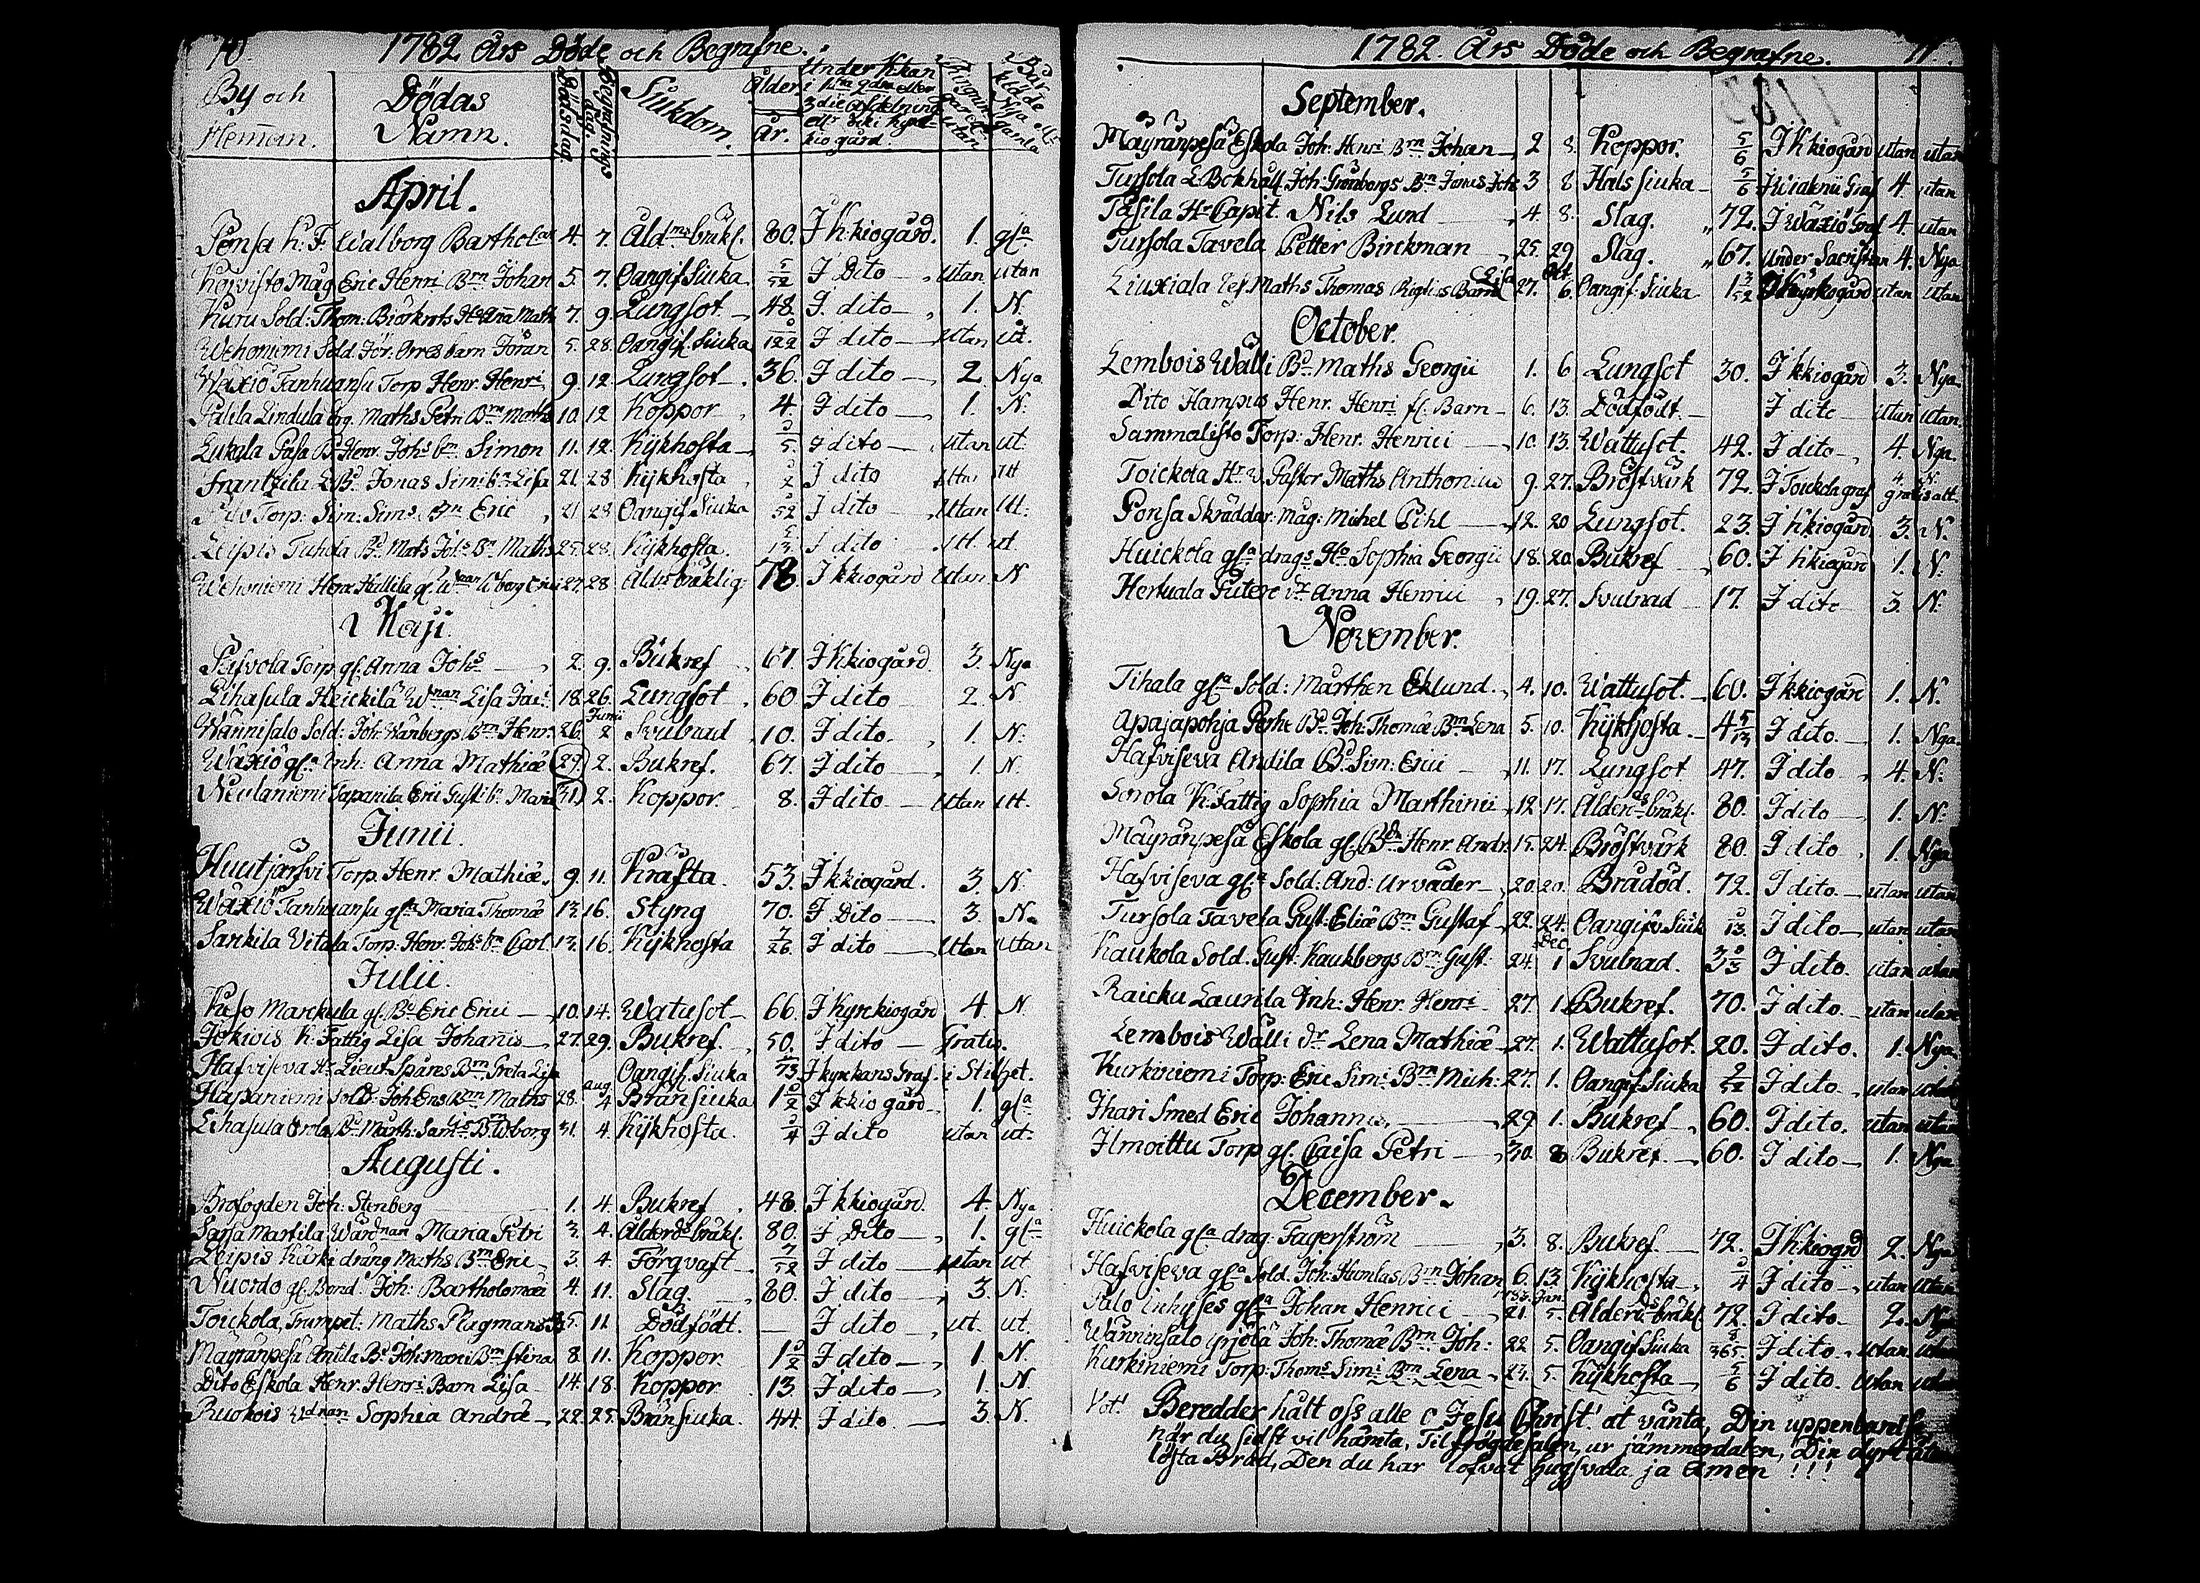 10. 1782 Års Döde och Begrafne.
By och Hemman. Dödas Namn. Dödsdag Begrafnings dag. Siukdom. Ålder År.
April.
Ponsa h: F. Walborg Barthol 4. 7. Åld bräkl. 80. I k:kiogård. 1. gla
Koivisto Mag Eric Henri Brn Johan 5. 7. Oangif. Siuka 5/52 I Dito utan utan
Kuru Sold: Thom: Biörkrots Anna Math 7. 9. Lungsot 48. I dito 1. N.
Wehoniemi Sold. Jör: Orres barn Jöran 5. 28. Oangif. Siuka I dito utan ut.
Wäxiö Tanhuansu Torp Henr. Henri 9. 12. Lungsot 36. I dito 2 Nya
Palila Lindula Maths Petri Brn Maths 10. 12 Koppor 4. I dito 1. N.
Lukala Pasa Bd Henr. Johs bn Simon 11. 12. Kijkhosta 3/5. I dito utan ut.
Frantzila Bd Jonas Simi bn Lisa 21. 28. Kijkhosta I dito utan ut
Torp: Sim: Sims Bn Eric 21 28 Oangif. Siuka I dito utan ut.
Leipis Tuhola Bd Mats Johs Bn Maths 25. 28. Kijkhosta I dito ut. ut.
Wehoniemi Henr Hullila gl. 27. 28 bräklig. 78. I kkiogård utan N
Maji.
Torp gl. Anna Johs 2. 9. Bukref 67. I kkiogård 3. Nya
Lihasula Heickilä Wnan Lisa 18. 26. Lungsot 60 I dito 2. N
Wännisalo Sold: Joh: Wänbergs Brn Henr. 26. Junii 2 Svulnad 10. I dito 1. N.
Wäxiö gla Inh: Anna Mathiæ 29. 2. Bukref. 67. I dito 1. N.
Niulaniemi Tapanila Eric Gust: bn Maria 31. 2. Koppor. 8. I dito utan ut.
Junii.
Huutjärfvi Torp. Henr. Mathiæ 9. 11. Kräfta. 53. I kkiogård. 3. N.
Wäxiö Tanhuansu gla Maria Thomæ 13. 16. Styng 70. I Dito 3. N.
Sankila Vitala Torp: Henr. Johs bn Carl. 13. 16. Kijkhosta 7/26. I dito utan utan
Julii.
Keso Marckula gl. Bd Eric Erici 10. 14. Watusot 66. I Kyrckiogård 4. N.
Jokiois h: Fattig Lisa Johanis 27. 29. Bukref. 50. I dito Gratis.
Hafviseva Hr Lieut Spåres Brn Greta Lisa Oangif. Siuka /73 I kyrckans Graf. i Stillhet.
Hapaniemi Sold: Joh Ens Brn Maths 28. aug. 4 Bränsiuka 1 I kkiogård 1. gla
Lihasula Orola Bd Märth: Sam: Brn Wborg 31. 4. Kijkhosta. 3/4 I dito utan ut.
Augusti.
Brofogden Joh: Stenberg 1. 4. Bukref 48. I kkiogård. 4. Nya
Sarsa Martila Wärdnan Maria Petri 3. 4. Ålderdsbräkl. 80. I Dito 1. gla
Leipis Kärki dräng Maths Brn Eric 3. 4. Förqvaft 7/52 I dito utan ut
Nuordo gl. Bond. Joh: Bartholomæi 4. 11. Slag. 80. I dito 3. N.
Toickola, Trumpet: Maths Plagmans 5. 11 Dödfödt. I dito ut. ut.
Mäyränpesä Antila Bd Joh: Marci Brn Stina 8. 11. Koppor. 1 I dito 1. N.
Dito Eskola Henr. Henri Barn Lisa 14. 18. Koppor 13 I dito 1. N
Ruokois Wdnan Sophia Andræ 22. 25. Bränsiuka. 44. I dito 3. N.
1782. Års Döde och Begrafne. 11.
September.
Mäyränpesä Eskola Joh: Henri Brn Johan 2 8. Koppor. 5/6 I kkiogård utan utan
Tursola L Bokhåll. Joh Grönbergs Bn Jonas Joh: 3 8 Hals siuka 5/6 Graf 4. utan
Pasila Hr Capit. Nils Lund 4. 8. Slag. 72. I Wäxiö Graf 4 utan
Tursola Tavela Petter Birckman 25. 29. Slag. 67. under Sacristian 4. Nya
Liuxiala Maths Thomas Barn Lisa 27. Oct. 6. Oangif: Siuka 1 3/52 I Kyrkogård utan utan
October.
Lembois Walli Bd Maths Georgii 1. 6 Lungsot 30. I kkiogård 3. Nya.
Dito Hampus Henr. Henri fl. Barn 6. 13. Dödfödt. I dito utan utan.
Sammalisto Torp: Henr. Henrici 10. 13. Wattusot. 42. I dito 4. Nya.
Toickola Hr v. Pastor Maths Anthonius 9. 27. Bröstvärk 72. I Toickola graf
Ponsa Skräddar: Mag: Michel Pihl 12. 20 Lungsot. 23. I kkiogård 3. N.
Huickola gla drags Ha Sophia Georgii 18. 20. Bukref 60. I kkiogård 1. N.
Hertuala Putere dr Anna Henrici 19. 27. Svulnad 17. I dito 3. N.
November.
Tihala gla Sold: Mårthen Eklund. 4. 10. Wattusot. 60. I kkiogård 1. N.
Apajapohja Perhe Bd Joh: Thomæ Brn Lena 5. 10. Kijkhosta. 4 5/13 I dito. 1. Nya.
Hafviseva Andila Bd Sim: Erici 11. 17. Lungsot 47. I dito 4. N.
Sorola K: Fattig Sophia Marthinii 12. 17. Ålderdsbräkl. 80. I dito 1. N.
Mäyränpesä Eskola gl. Bdn Henr. Andr. 15. 24. Bröstvärk 80. I dito 1. Nya
Hafviseva gla Sold: And: Urväder 20. 20. Brådöd. 72. I dito utan utan
Tursola Tavela Gust: Eliæ Brn Gustaf 22. 24. Oangifv: Siuk 3/13 I dito utan utan
Kaukola Sold. Gust: Kaukbergs Brn Gust: 24. Dec. 1 Svulnad. 3 I dito. utan utan
Raicku Laurila Inh: Henr. Henri 27. 1. Bukref. 70. I dito utan utan
Lembois Walli dr Lena Mathiæ 27. 1. Wattusot. 20. I dito. 1. Nya.
Kurkiniemi Torp: Eric Simi Brn Mich: 27. 1. Oangif: Siuka 9/52 I dito utan utan
Ihari Smed Eric Johannis 29. 1. Bukref 60. I dito. utan utan
Ilmoittu Torp gl. Caisa Petri 30. 8 Bukref. 60. I dito 1. Nya
December.
Huickola gla drag: Fagerström 3. 8. Bukref. 72. I kkiogrd 2. Nya
Hafviseva gla Sold. Joh: Humlas Brn Johan 6. 13 Kijkhosta 3/4 I dito utan utan
Palo inhyses gla Johan Henrici 21. 5. Ålderdsbräkl 72. I dito 2.
Wänninsalo Joh: Thomæ Brn Joh: 22 5. Oangif Siuka 8/365. I dito utan
Kurkiniemi Torp: Thoms Simi Brn Lena 23. 5. Kijkhosta 5/6 I dito. utan
Vot! Beredder hålt oss alle o Jesu Christ! at vänta, Din
när du sidst vil hämta, Til frögdesalen, ur jämmerdalen, Din
lösta Brud, Den du har lofvat hugsvala ja Amen!!!